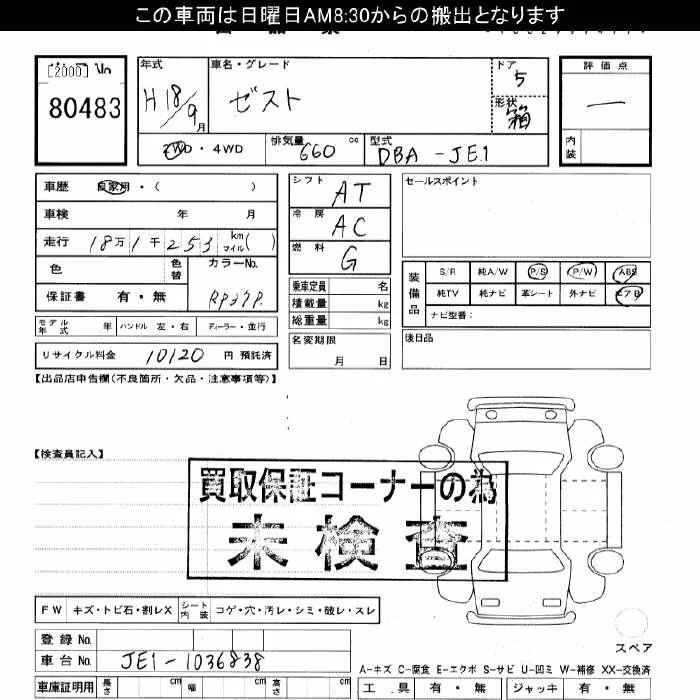 この車両は日曜日AM8:30からの搬出となります
[2000] No
80483
年式 H18/9月
車名・グレード ゼスト
ドア 5
形状 箱
評価点 —
内装
2WD・4WD
排気量 660 cc
型式 DBA-JE1
車歴 自家用・( )
車検 年 月
走行 18万1千253 km マイル( )
色 色替 カラーNo.
保証書 有・無 RP37P
モデル年式 年 ハンドル 左・右 ディーラー・並行
リサイクル料金 10120 円 預託済
シフト AT
冷房 AC
燃料 G
乗車定員 名
積載量 kg
総重量 kg
名変期限 月 日
セールスポイント
装備品
S/R 純A/W P/S P/W ABS
純TV 純ナビ 革シート 外ナビ エアB
ナビ型番:
後日品
【出品店申告欄(不良箇所・欠品・注意事項等)】
【検査員記入】
買取保証コーナーの為
未検査
FW キズ・トビ石・割レX シート内装 コゲ・穴・汚レ・シミ・破レ・スレ
登録No.
車台No. JE1-1036838
車庫証明用 長さ cm 幅 cm 高さ cm
スペア
A-キズ C-腐食 E-エクボ S-サビ U-凹ミ W-補修 XX-交換済
工具 有・無 ジャッキ 有・無